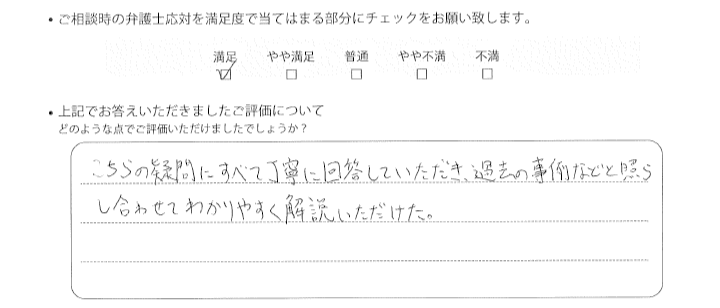 • ご相談時の弁護士応対を満足度で当てはまる部分にチェックをお願い致します。
満足 やや満足 普通 やや不満 不満
☑ □ □ □ □
• 上記でお答えいただきましたご評価について
どのような点でご評価いただけましたでしょうか？
こちらの疑問にすべて丁寧に回答していただき、過去の事例などと照ら
し合わせてわかりやすく解説いただけた。